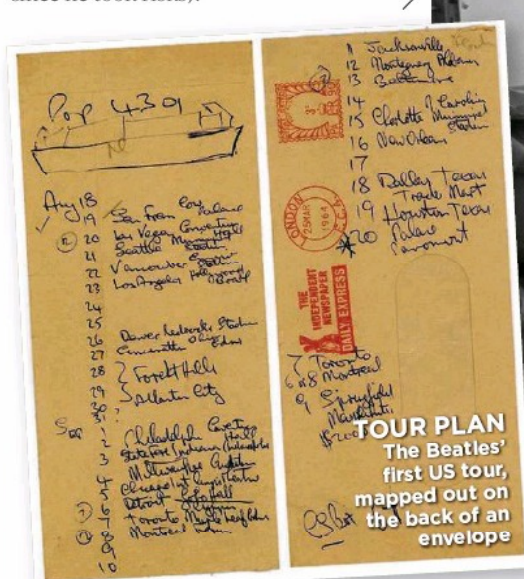 Pop 4301
Aug 18
19 San Fran Cow Palace
20 Las Vegas Convention
Seattle
21
22 Vancouver Empire
23 Los Angeles Hollywood Bowl
24
25
26 Denver Red Rocks Stadium
27 Cincinnati Ohio Gdns
28 } Forest Hills
29
30 } Atlantic City
31
Sep 1
2 Philadelphia Convention Hall
3 State Fare Indiana Indianapolis
4 Milwaukee
5 Chicago
6 Detroit
7 Toronto Maple Leaf Gdns
8 Montreal
9
10
11 Jacksonville
12 Montgomery Alabama
13 Baltimore
14
15 Charlotte N Carolina
16 New Orleans
17
18 Dallas Texas
Trade Mart
19 Houston Texas
*20 Palace
Paramount
LONDON
25 MAR
1964
E.C.4
THE
INDEPENDENT
NEWSPAPER
DAILY EXPRESS
7 Toronto
6 or 8 Montreal
9 Springfield
TOUR PLAN
The Beatles'
first US tour,
mapped out on
the back of an
envelope